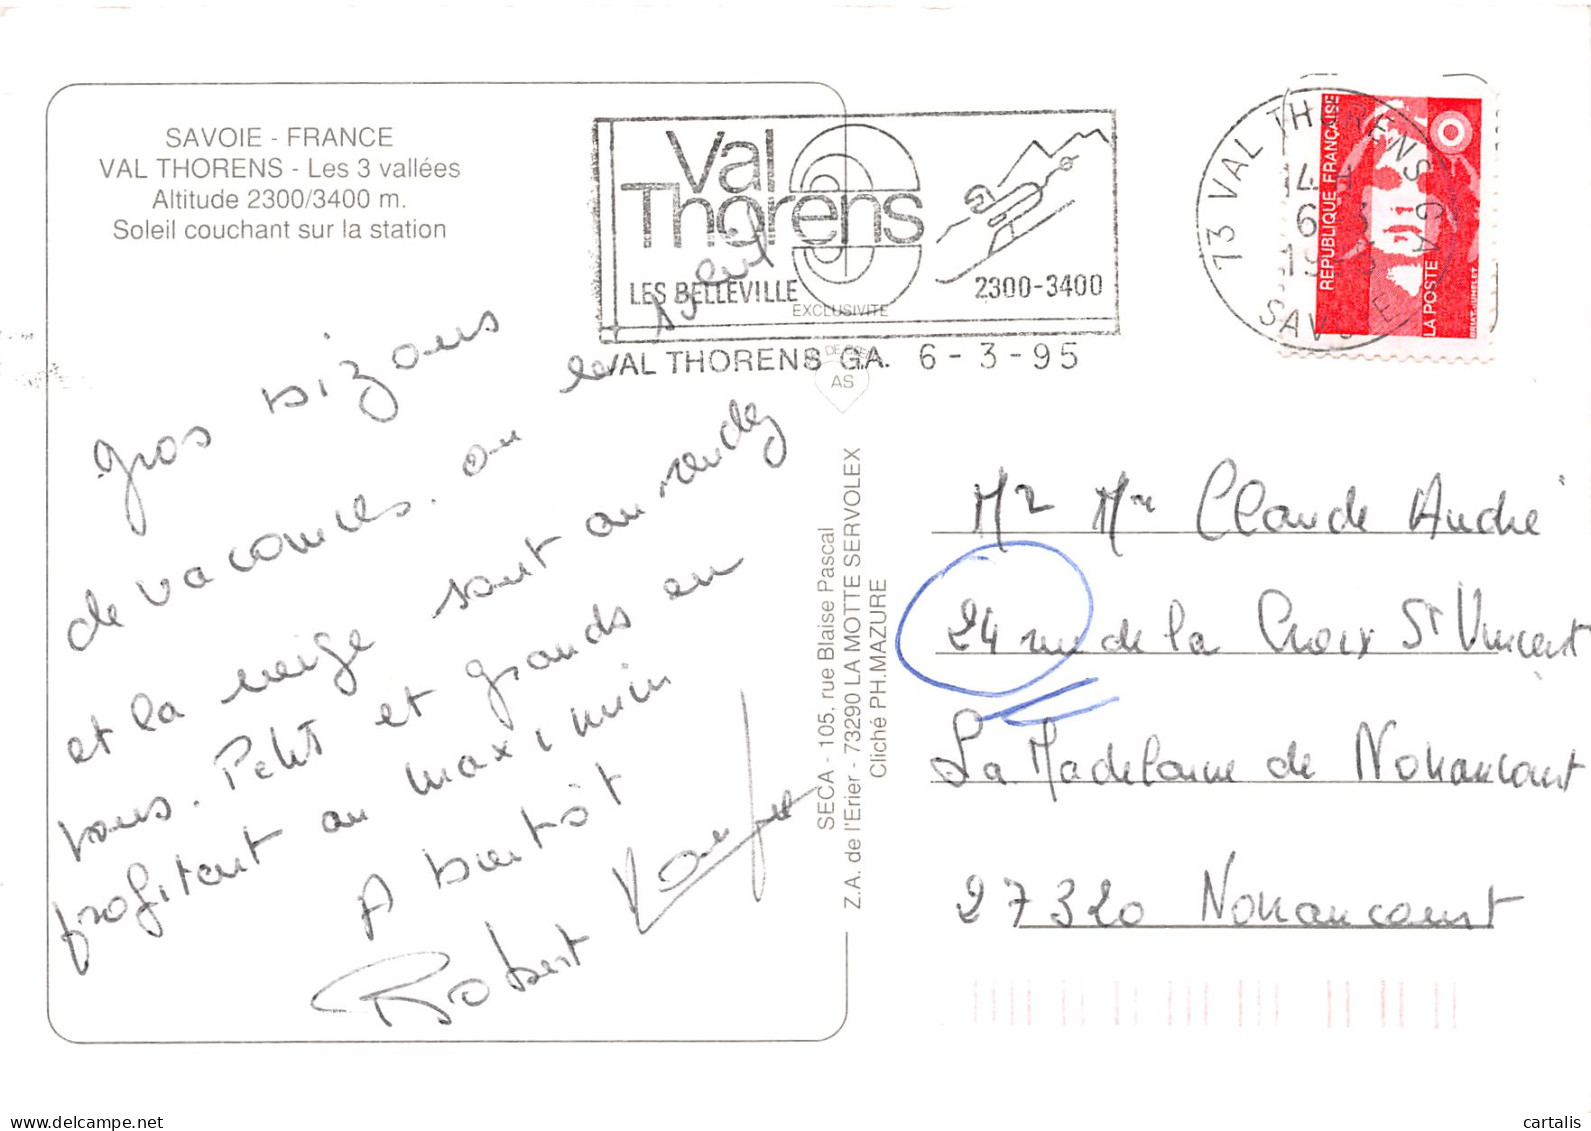 SAVOIE - FRANCE
VAL THORENS - Les 3 vallées
Altitude 2300/3400 m.
Soleil couchant sur la station
Val
Thorens
LES BELLEVILLE
2300-3400
EXCLUSIVITE
VAL THORENS G.A. 6 - 3 - 95
AS
73 VAL THORENS G.A.
SAVOIE
RÉPUBLIQUE FRANÇAISE
LA POSTE
gros bizous
de vacances. ou le soleil
et la neige sont au rendez
vous. Petit et grands en
profitent au maximum
A bientôt
Robert
SECA - 105, rue Blaise Pascal
Z.A. de l'Erier - 73290 LA MOTTE SERVOLEX
Cliché PH.MAZURE
Mr Mme Claude André
24 rue de la Croix St Vincent
La Madelaine de Nonancourt
27320 Nonancourt
delcampe.net
cartalis